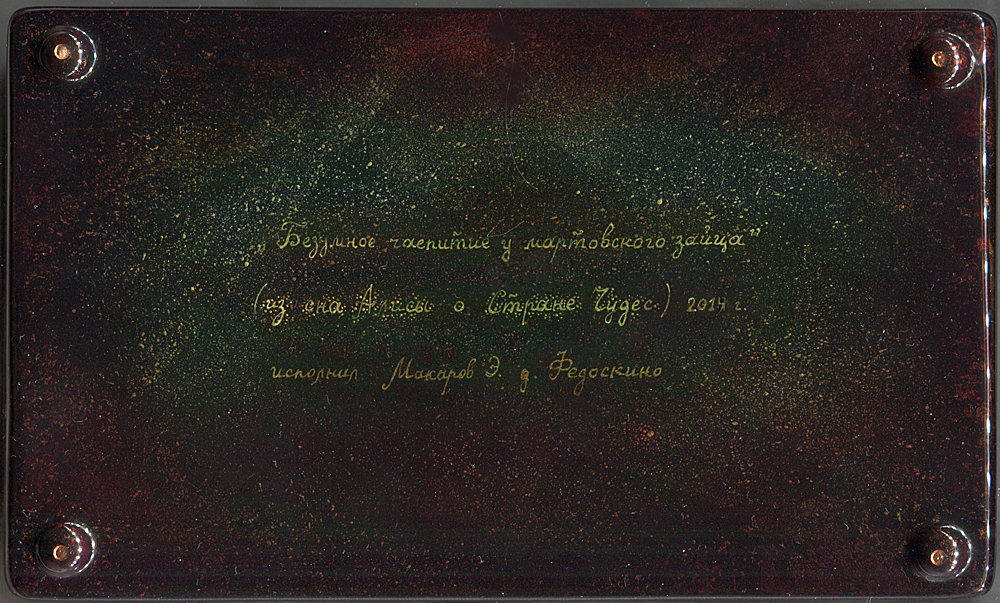 „Безумное чаепитие у мартовского зайца”
(из сна Алисы о Стране Чудес) 2014 г.
исполнил Макаров Э. д. Федоскино